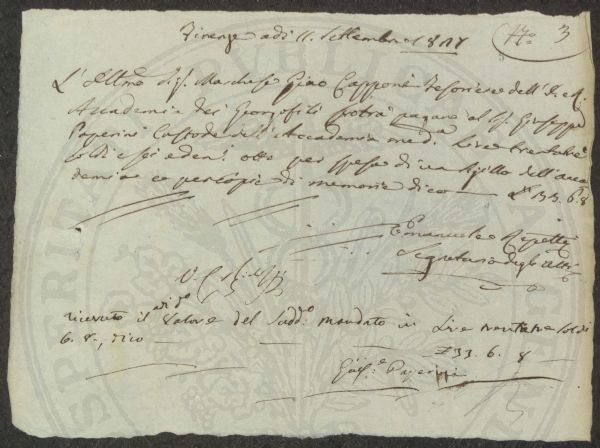 Firenze adi 11. Settembre 1817
N.o 3
L'Illmo Sig. Marchese Gino Capponi Tesoriere dell' I. e R.
Accademia dei Georgofili potrà pagare al Sig. Giuseppe
Paperini Custode dell' Accademia meda. Lire trentatre
soldi sei e den. otto per spese di un sigillo dell' Acca
demia e per copie di memorie dico £ 33. 6. 8
Emanuele Repetti
Segretario degli Atti
ricevuto il valore del sudd.o mandato in Lire trentatre soldi
6. 8., dico
£ 33. 6. 8
Gius.e Paperini